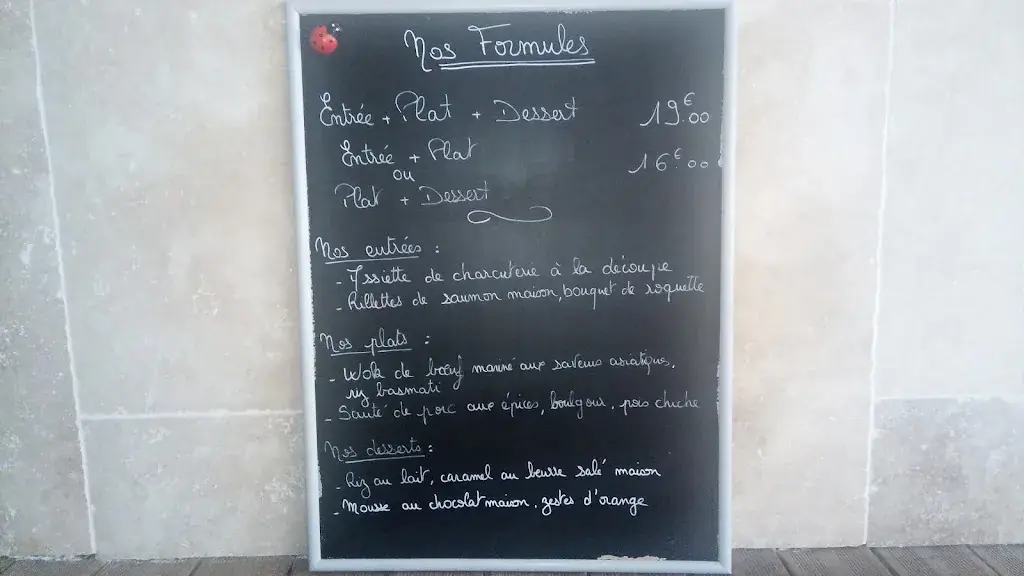 Nos Formules
Entrée + Plat + Dessert 19€00
Entrée + Plat 16€00
ou
Plat + Dessert
Nos entrées :
- Assiette de charcuterie à la découpe
- Rillettes de saumon maison, bouquet de roquette
Nos plats :
- Wok de bœuf mariné aux saveurs asiatiques,
riz basmati
- Sauté de porc aux épices, boulgour, pois chiche
Nos desserts :
- Riz au lait, caramel au beurre salé maison
- Mousse au chocolat maison, zestes d'orange